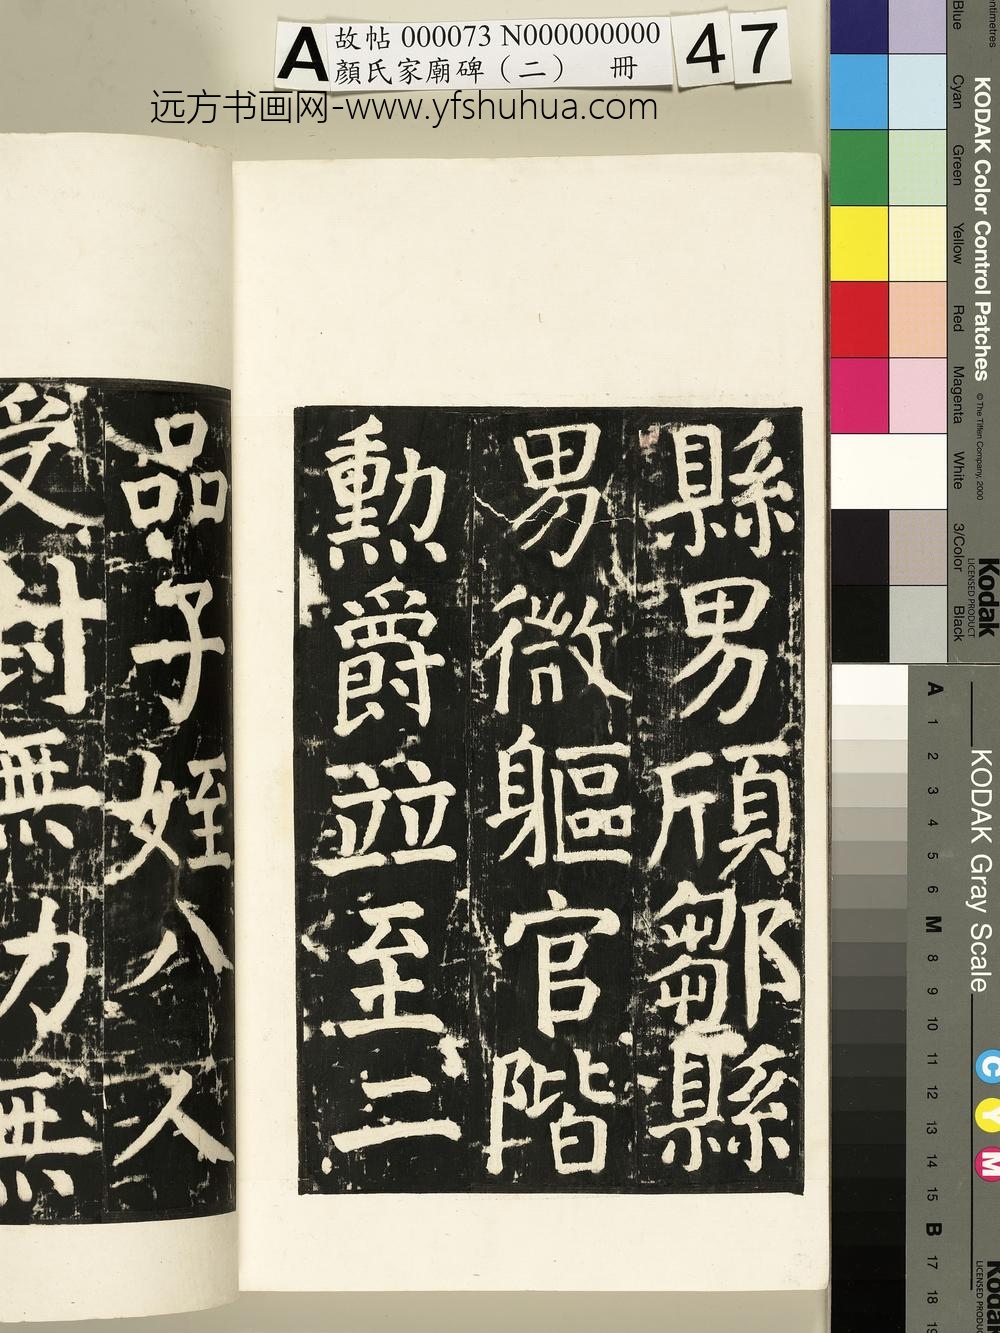 A
故帖 000073 N000000000
顏氏家廟碑（二） 冊
47
远方书画网-www.yfshuhua.com
縣男頎鄒縣
男微軀官階
勳爵並至二
品子姪八人
受封無力無
centimetres
Blue
Cyan
Green
Yellow
Red
Magenta
White
3/Color
Black
KODAK Color Control Patches
© The Tiffen Company, 2000
Kodak
LICENSED PRODUCT
KODAK Gray Scale
A 1 2 3 4 5 6 M 8 9 10 11 12 13 14 15 B 17 18 19
C
Y
M
Kodak
LICENSED PRODUCT